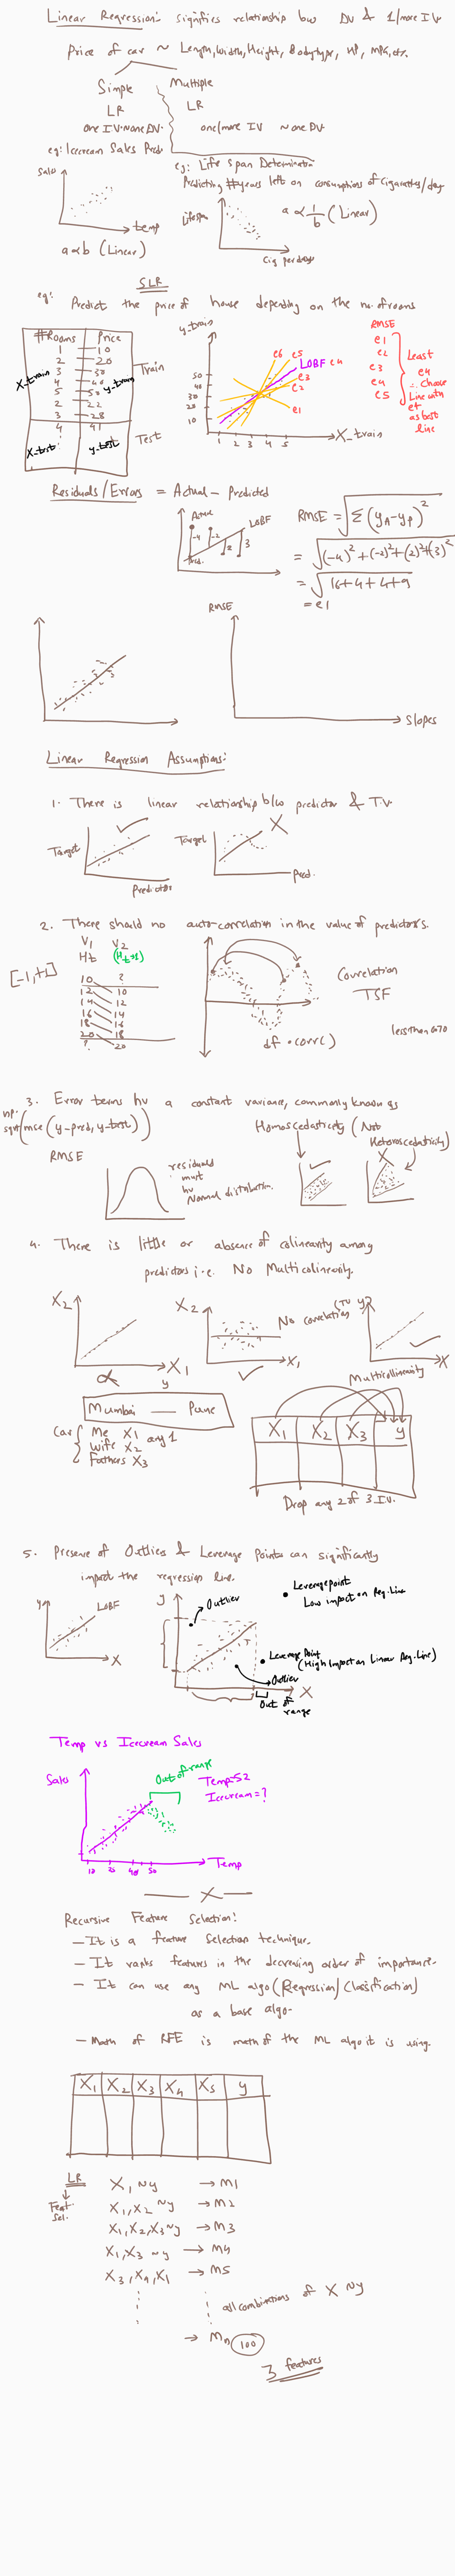 Linear Regression: signifies relationship b/w DV & 1/more IV.
Price of car ~ Length, Width, Height, Bodytype, HP, MPG, etc.
Simple
LR
one IV ~ one DV
eg: Icecream Sales Pred.
Multiple
LR
one/more IV ~ one DV
eg: Life span Determination
Predicting #years left on consumptions of Cigarattes/day
Sales
temp
a ∝ b (Linear)
Lifespan
Cig per days
a ∝ 1/b (Linear)
SLR
eg: Predict the price of house depending on the no. of rooms
#Rooms Price
1 10
2 20
3 30
4 40
5 50
2 22
3 28
4 41
X_train
y_train
Train
X_test
y_test
Test
y_train
50
40
30
20
10
1 2 3 4 5
X_train
e6 e5
LOBF e4
e3
e2
e1
RMSE
e1
e2
e3
e4
e5
Least
e4
∴ Choose
Line with
e4
as best
line
Residuals/Errors = Actual - Predicted
Actual
LOBF
-4 -2 2 3
Pred.
RMSE = √Σ(yA-yP)²
= √(-4)²+(-2)²+(2)²+(3)²
= √16+4+4+9
= e1
RMSE
Slopes
Linear Regression Assumptions:
1. There is linear relationship b/w predictor & T.V.
Target
Predictor
Target
Pred.
2. There should no auto-correlation in the value of predictors.
V1 V2
Ht (Ht+1)
[-1,+1]
10 ?
12 10
14 12
16 14
18 16
20 18
? 20
Correlation
TSF
df.corr()
less than 0.70
3. Error terms hv a constant variance, commonly known as
Homoscedasticity (Not
Heteroscedasticity)
np.
sqrt(mse(y_pred, y_test))
RMSE
residuals
must
hv
Normal distribution.
4. There is little or absence of colinearity among
predictors i.e. No Multicolinearity.
X2
X1
X2
X1
No correlation
(TV) y
X
y
Multicollinearity
Mumbai — Pune
Car
Me X1
Wife X2
Fathers X3
any 1
X1 X2 X3 y
Drop any 2 of 3 I.V.
5. Presence of Outliers & Leverage Points can significantly
impact the regression line.
y
LOBF
X
y
Outlier
Leverage point
Low impact on Reg. Line
Leverage Point
(High Impact on Linear Reg. Line)
Outlier
X
Out of
range
Temp vs Icecream Sales
Sales
Out of range
Temp=52
Icecream=?
Temp
X
Recursive Feature Selection:
- It is a feature selection technique.
- It ranks features in the decreasing order of importance.
- It can use any ML algo (Regression/Classification)
as a base algo.
- Math of RFE is math of the ML algo it is using.
X1 X2 X3 X4 X5 y
LR
Feat.
Sel.
X1 ~ y → M1
X1, X2 ~ y → M2
X1, X2, X3 ~ y → M3
X1, X3 ~ y → M4
X3, X4, X1 → M5
all combinations of X ~ y
→ Mn 100
3 features